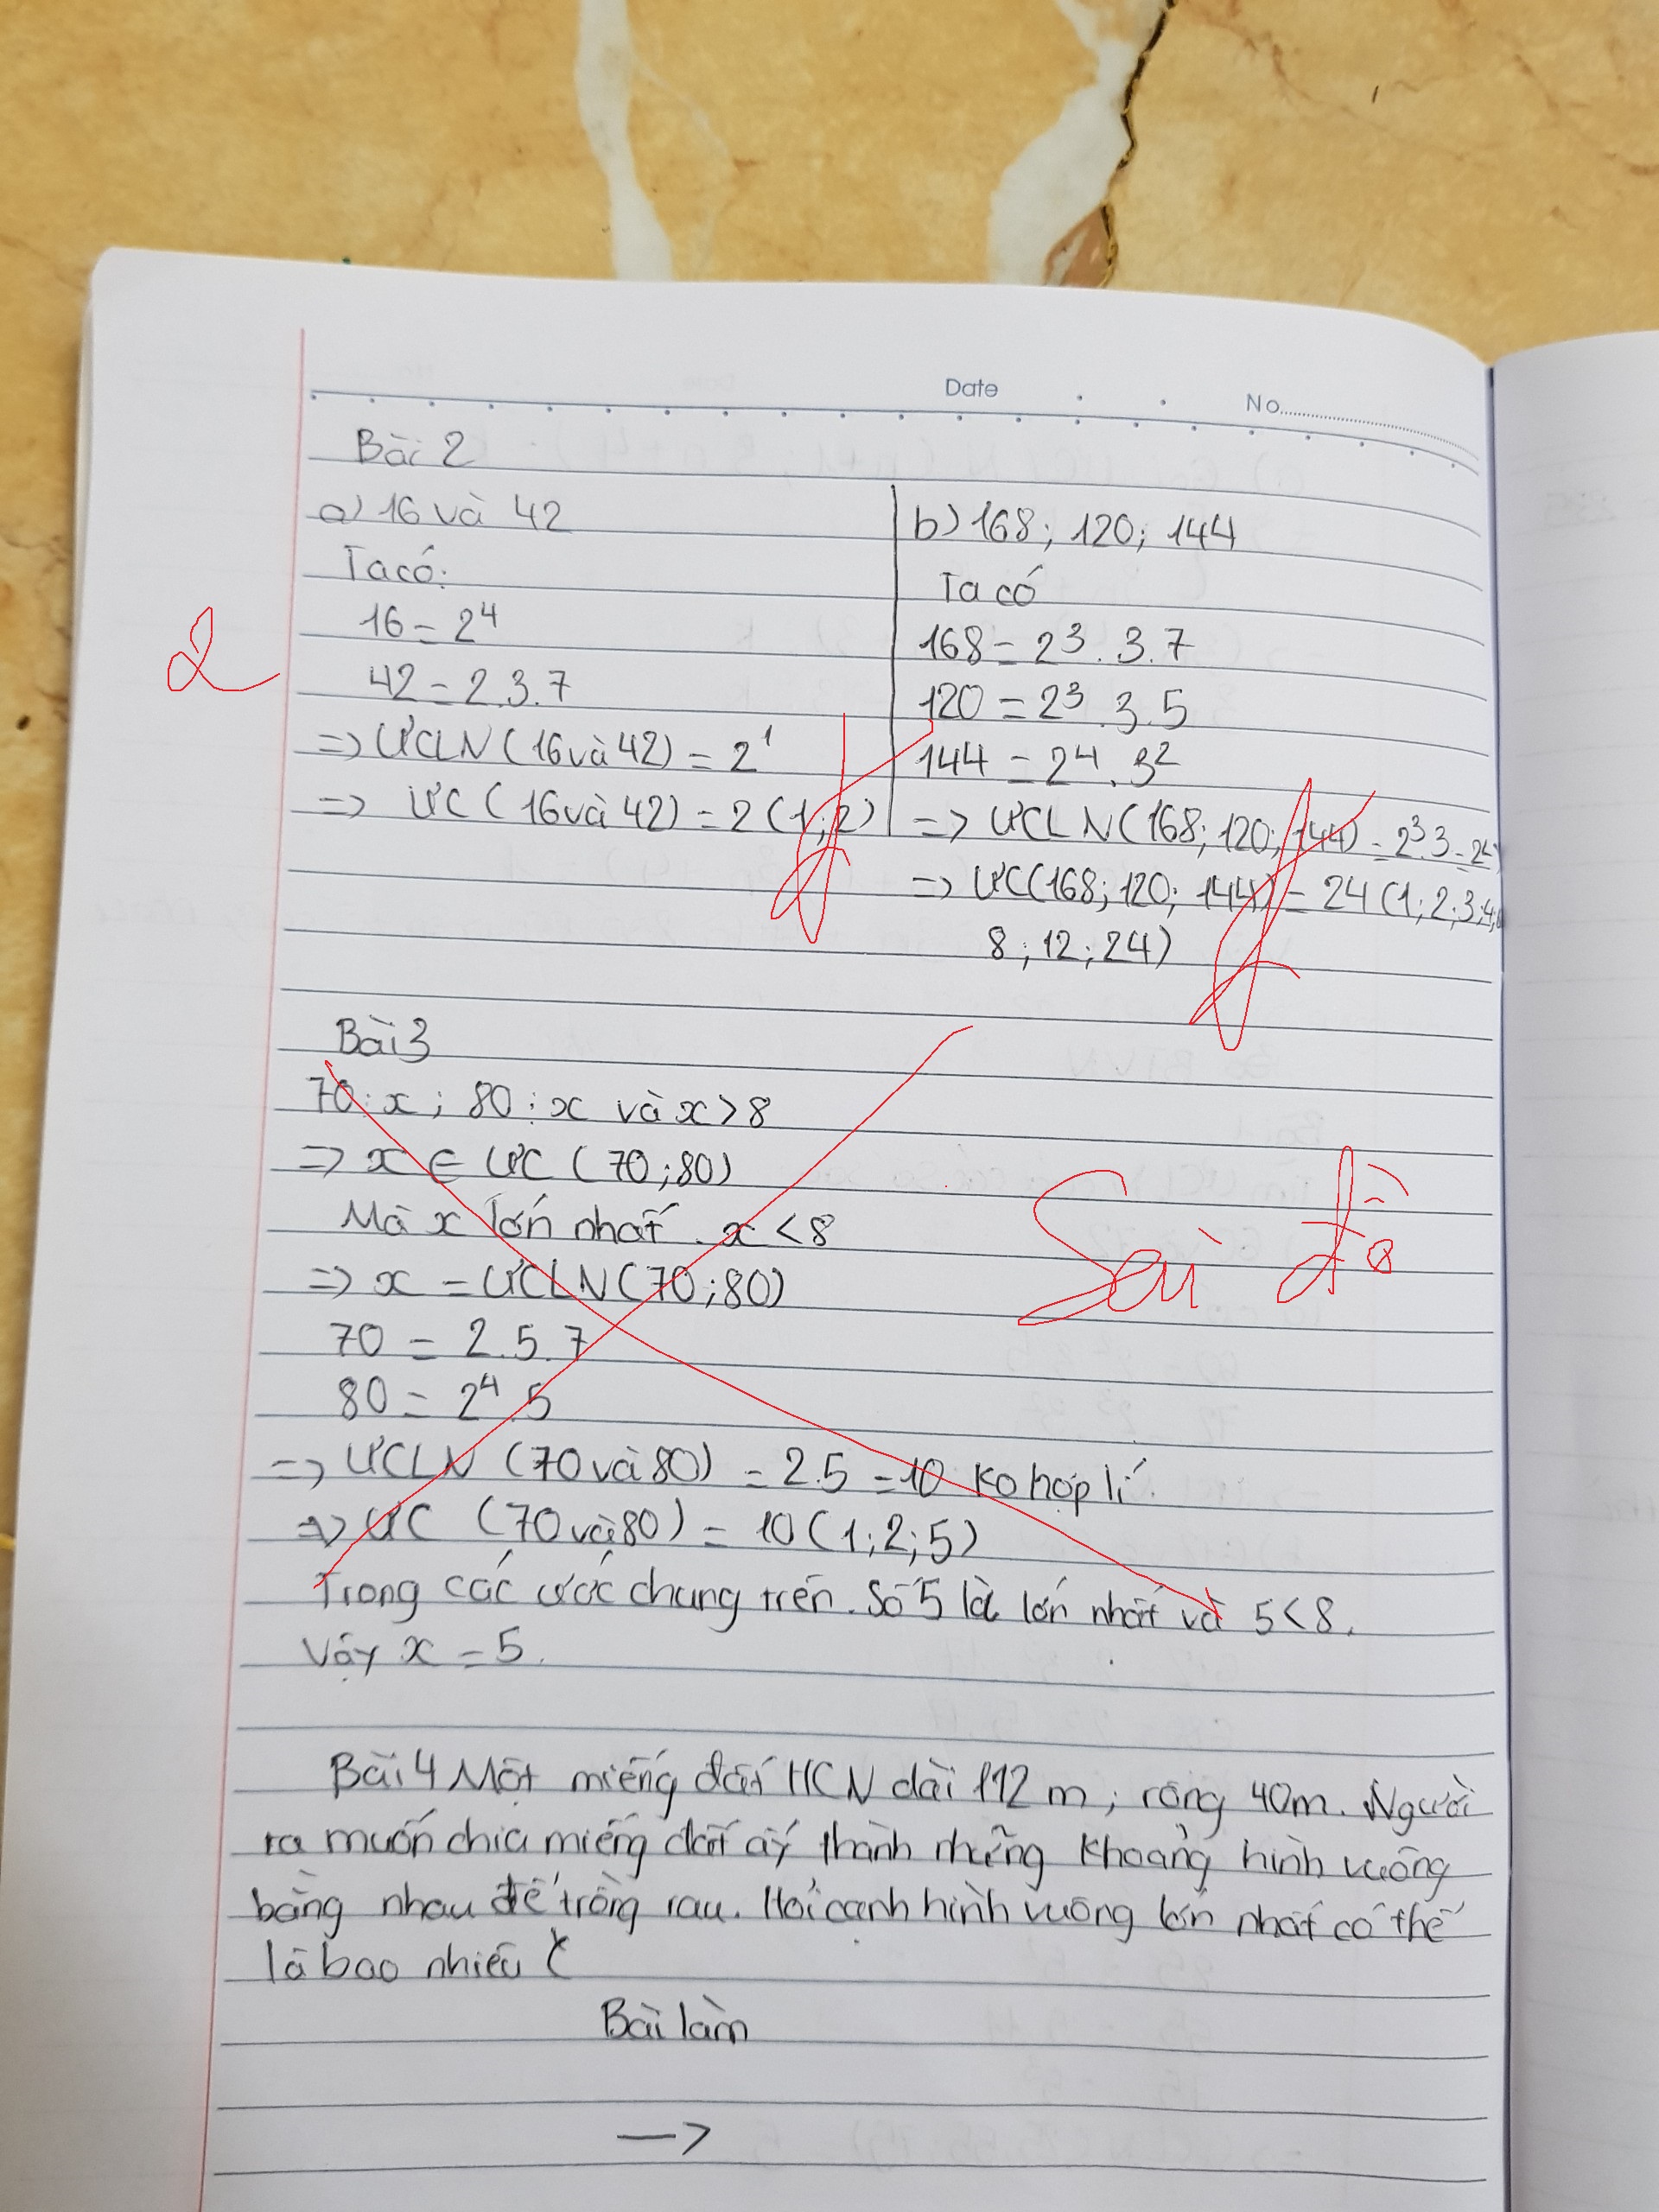 Date No
Bài 2
a) 16 và 42
Ta có:
16 = 2⁴
42 = 2.3.7
=> ƯCLN (16 và 42) = 2¹
=> ƯC (16 và 42) = 2 (1; 2)
b) 168; 120; 144
Ta có
168 = 2³.3.7
120 = 2³.3.5
144 = 2⁴.3²
=> ƯCLN (168; 120; 144) = 2³.3 = 24
=> ƯC (168; 120; 144) = 24 (1; 2; 3; 4;
8; 12; 24)
2
đ
đ
Bài 3
70 : x ; 80 : x và x > 8
=> x ∈ ƯC (70; 80)
Mà x lớn nhất. x < 8
=> x = ƯCLN (70; 80)
70 = 2.5.7
80 = 2⁴.5
=> ƯCLN (70 và 80) = 2.5 = 10 Ko hợp lí.
=> ƯC (70 và 80) = 10 (1; 2; 5)
Trong các ước chung trên. Số 5 là lớn nhất và 5 < 8.
Vậy x = 5.
Sai đề
Bài 4 Một miếng đất HCN dài 112 m, rộng 40m. Người
ta muốn chia miếng đất ấy thành những khoảng hình vuông
bằng nhau để trồng rau. Hỏi cạnh hình vuông lớn nhất có thể
là bao nhiêu?
Bài làm
→